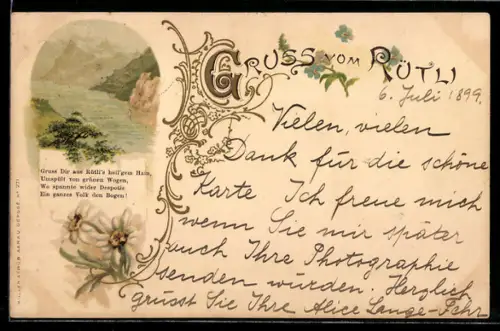 GRUSS VOM RÜTLI
6. Juli 1899.
Vielen, vielen
Dank für die schöne
Karte Ich freue mich
wenn Sie mir später
auch Ihre Photographie
senden würden. Herzlich
grüsst Sie Ihre Alice Lange-Fehr
Gruss Dir aus Rütli's heil'gem Hain,
Umspült von grünen Wogen,
Wo spannte wider Despotie
Ein ganzes Volk den Bogen!